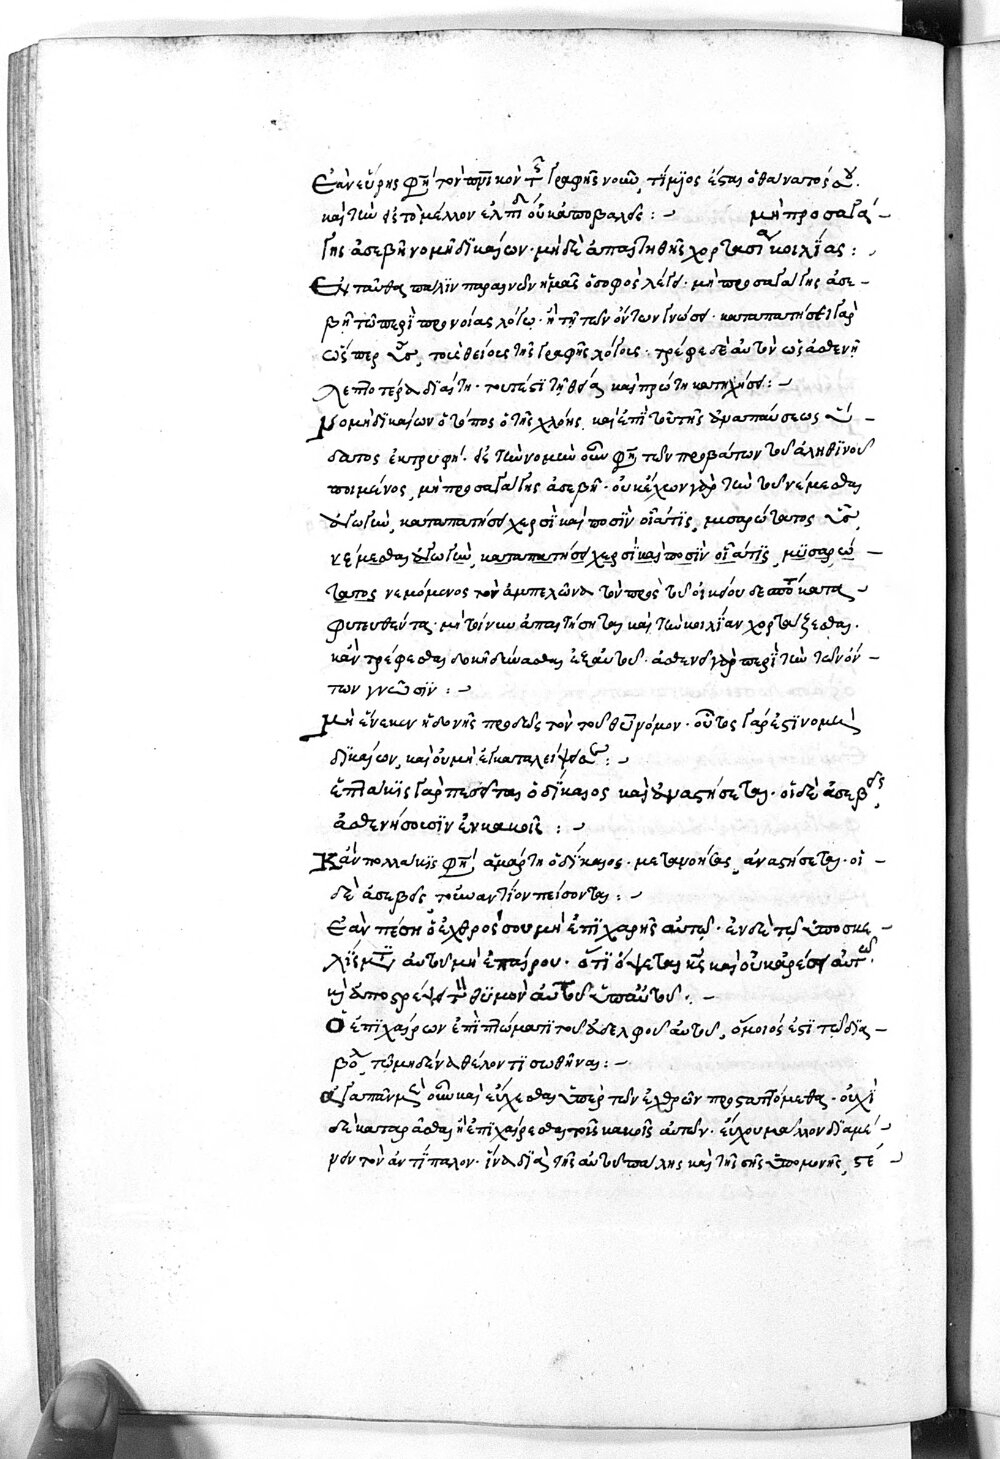 Ἐὰν εὕρης φη(σὶ) τὸν πνικὸν τῆς γραφῆς νοῦν, τίμιος ἔσται ὁ θάνατός σου.
καὶ τῶν εἰς τὸ μέλλον ἐλπίδ οὐκ ἀποβαλεῖς : μὴ προσαγά-
γης ἀσεβῆ νομῆ δικαίων· μὴ δὲ ἀπατηθῆς χορτασία κοιλίας :
Ἐνταῦθα πάλιν παραινῶν ἡμᾶς ὁ σοφὸς λέγει· μὴ προσαγάγης ἀσε-
βῆ τῶ περὶ προνοίας λόγω· ἢ τῆ τῶν ὄντων γνώσει· καταπατήσει γὰρ
ὥσπερ ὗς, τοὺς θείους τῆς γραφῆς λόγους· τρέφε δὲ αὐτὸν ὡς ἀσθενῆ
λεπτοτέρα διαίτη· τουτέστι τῆ θεία καὶ πρώτη κατηχήσει :
Νομὴ δικαίων ὁ τόπος ὁ τῆς χλόης, καὶ ἐπὶ τοῦ τῆς ἀναπαύσεως ὕ-
δατος ἐκτροφή· εἰς τὴν νομὴν οὖν φη(σὶ) τῶν προβάτων τοῦ ἀληθινοῦ
ποιμένος, μὴ προσαγάγης ἀσεβῆ· οὐκ ἔχων γὰρ τὴν τοῦ νέμεσθαι
ἀγωγὴν, καταπατήσει χερσὶ καὶ ποσὶν οἷά τις μυσαρώτατος ὗς,
νέμεσθαι ἀγωγὴν, καταπατήσει χερσὶ καὶ ποσὶν οἷά τις μυσαρώ-
τατος νεμόμενος τὸν ἀμπελῶνα τὸν πρὸς τοῦ οἰκείου δεσπότου κατα-
φυτευθέντα· μὴ τοίνυν ἀπατήση τὰ κατὰ τὴν κοιλίαν χορτάζεσθαι.
κἂν τρέφεσθαι δοκῆ δύνασθαι ἐξ αὐτοῦ· ἀσθενεῖ γὰρ περὶ τὴν τῶν ὄν-
των γνῶσιν :
Μὴ ἕνεκεν ἡδονῆς προσδῶς τὸν τοῦ θεοῦ νόμον· οὗτος γάρ ἐστι νομὴ
δικαίων, καὶ οὐ μὴ ἐγκαταλείψει σε :
ἑπτάκις γὰρ πεσεῖται ὁ δίκαιος καὶ ἀναστήσεται· οἱ δὲ ἀσεβεῖς
ἀσθενήσουσιν ἐν κακοῖς :
Κἂν πολλάκις φη(σὶ) ἁμάρτη ὁ δίκαιος· μετανοήσας, ἀναστήσεται· οἱ
δὲ ἀσεβεῖς, τοὐναντίον πείσονται :
Ἐὰν πέση ὁ ἐχθρός σου μὴ ἐπιχαρῆς αὐτῶ· ἐν δὲ τῶ ὑποσκε-
λίσματι αὐτοῦ μὴ ἐπαίρου· ὅτι ὄψεται κς καὶ οὐκ ἀρέσει αὐτῶ.
καὶ ἀποστρέψει τὸν θυμὸν αὐτοῦ ἀπ' αὐτοῦ.
Ὁ ἐπιχαίρων ἐπὶ πτώματι τοῦ ἀδελφοῦ αὐτοῦ, ὅμοιός ἐστι τῶ δια-
βόλ, τῶ μηδένα θέλοντι σωθῆναι :
ἀγαπᾶν μὲν οὖν καὶ εὔχεσθαι ὑπὲρ τῶν ἐχθρῶν προσταττόμεθα· οὐχὶ
δὲ καταρᾶσθαι ἢ ἐπιχαίρεσθαι τοῖς κακοῖς αὐτῶν· εὔχου μᾶλλον διαμέ-
νειν τὸν ἀντίπαλον· ἵνα διὰ τῆς αὐτοῦ πάλης καὶ τῆς σῆς ὑπομονῆς, στέ-